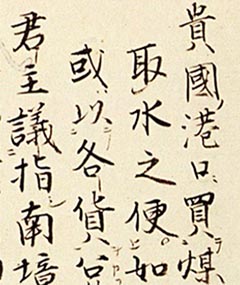 貴國港口買煤
取水之便如
或以各貨公
君主議指南境